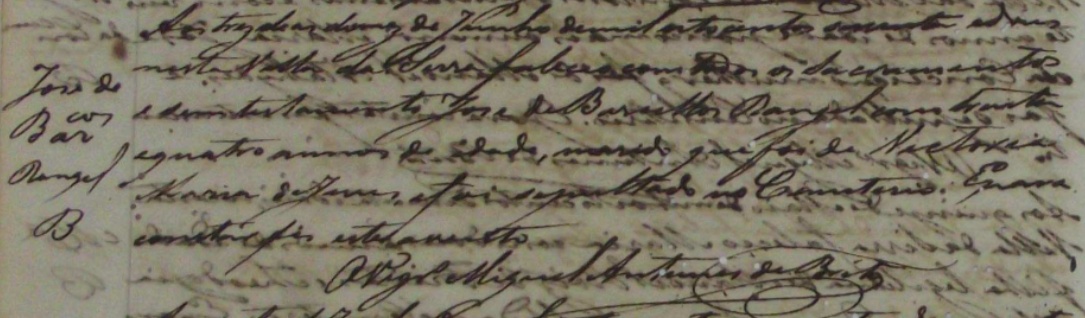 Jose de
Bar.cos
Rangel
B
Aos trez dias do mez de Junho de mil oitocentos secenta e dous
nesta Villa da Serra faleceo com todos os sacramentos
e sem testamento Jose de Barcellos Rangel com trinta
e quatro annos de idade, marido que foi de Victoria
Maria de Jesus, e foi sepultado no Cemiterio. E para
constar fiz este assento
O Vigr.o Miguel Antunes de Brito